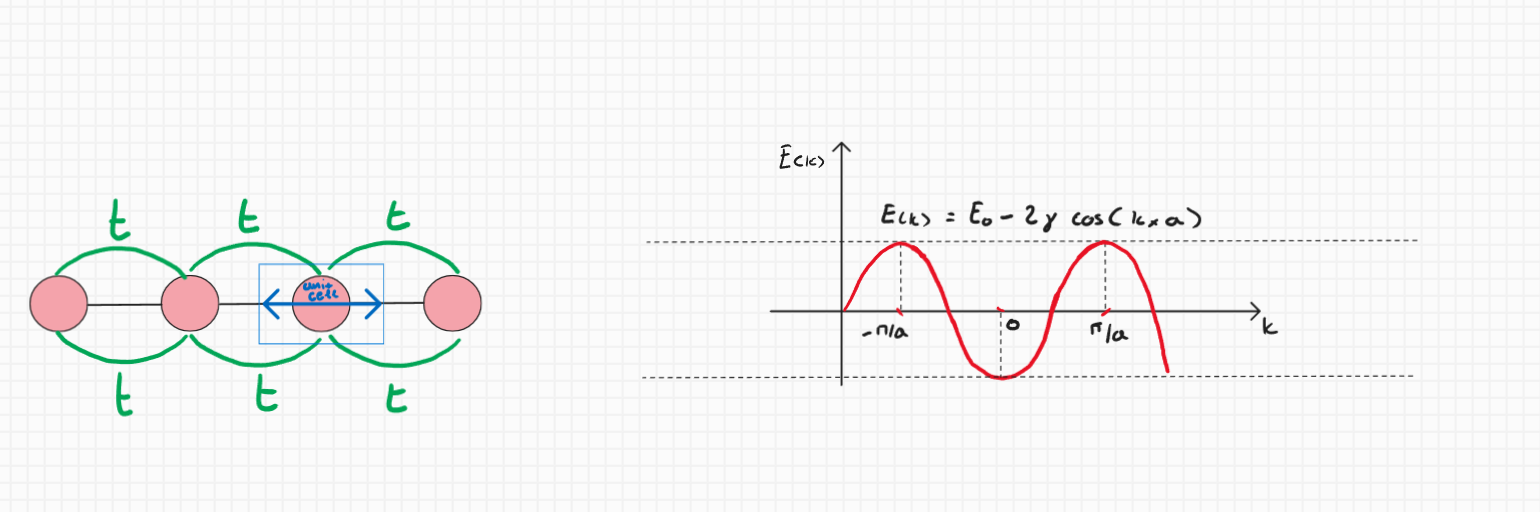 t t t
unit
cell
t t t
E(k)
E(k) = E₀ - 2γ cos(kₓ a)
-π/a 0 π/a
k